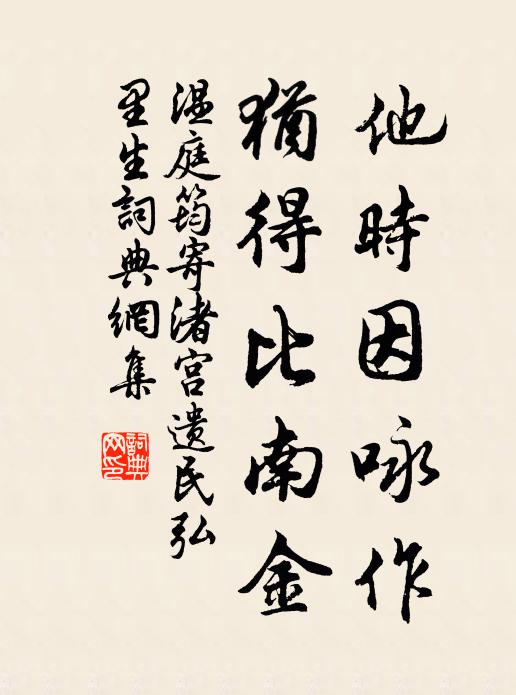 他時因咏作
猶得比南金
温庭筠寄渚宫遗民弘
里生詞典網集
詞典
网印